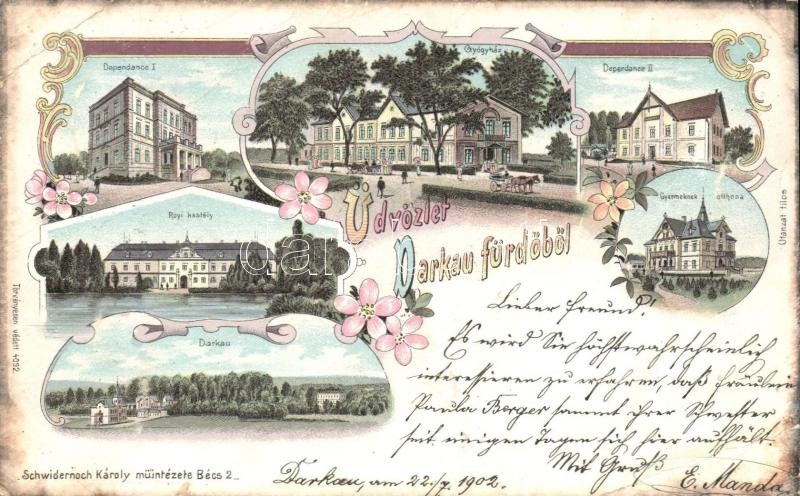 Dependance I
Gyógyház
Dependance II
Royi kastély
Gyermekek otthona
Üdvözlet
Darkau fürdőből
Darkau
Lieber Freund!
Es wird Sie höchstwahrscheinlich
interessieren zu erfahren, daß Fräulein
Paula Berger sammt ihrer Schwester
seit einigen Tagen sich hier aufhält.
Mit Gruß
E. Manda
Darkau, am 22./7. 1902.
Schwidernoch Károly müintézete Bécs 2_
Törvényesen védett 4092.
Utánzat tilos